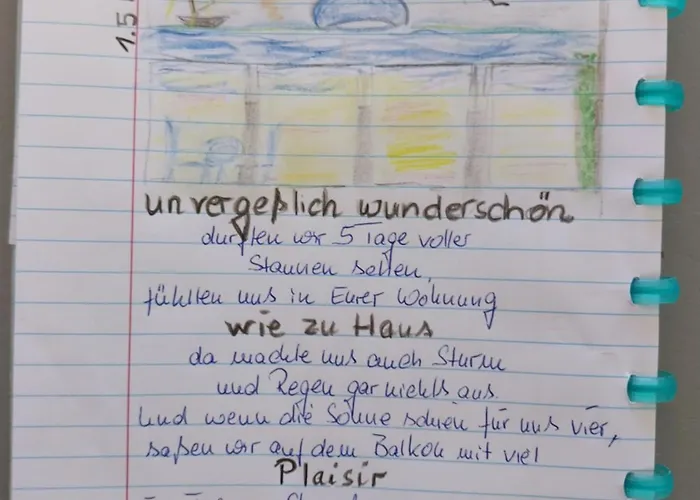 1.5
unvergeßlich wunderschön
durften wir 5 Tage voller
Staunen sehen,
fühlten uns in Eurer Wohnung
wie zu Haus
da machte uns auch Sturm
und Regen gar nichts aus.
Und wenn die Sonne schien für uns vier,
saßen wir auf dem Balkon mit viel
Plaisir